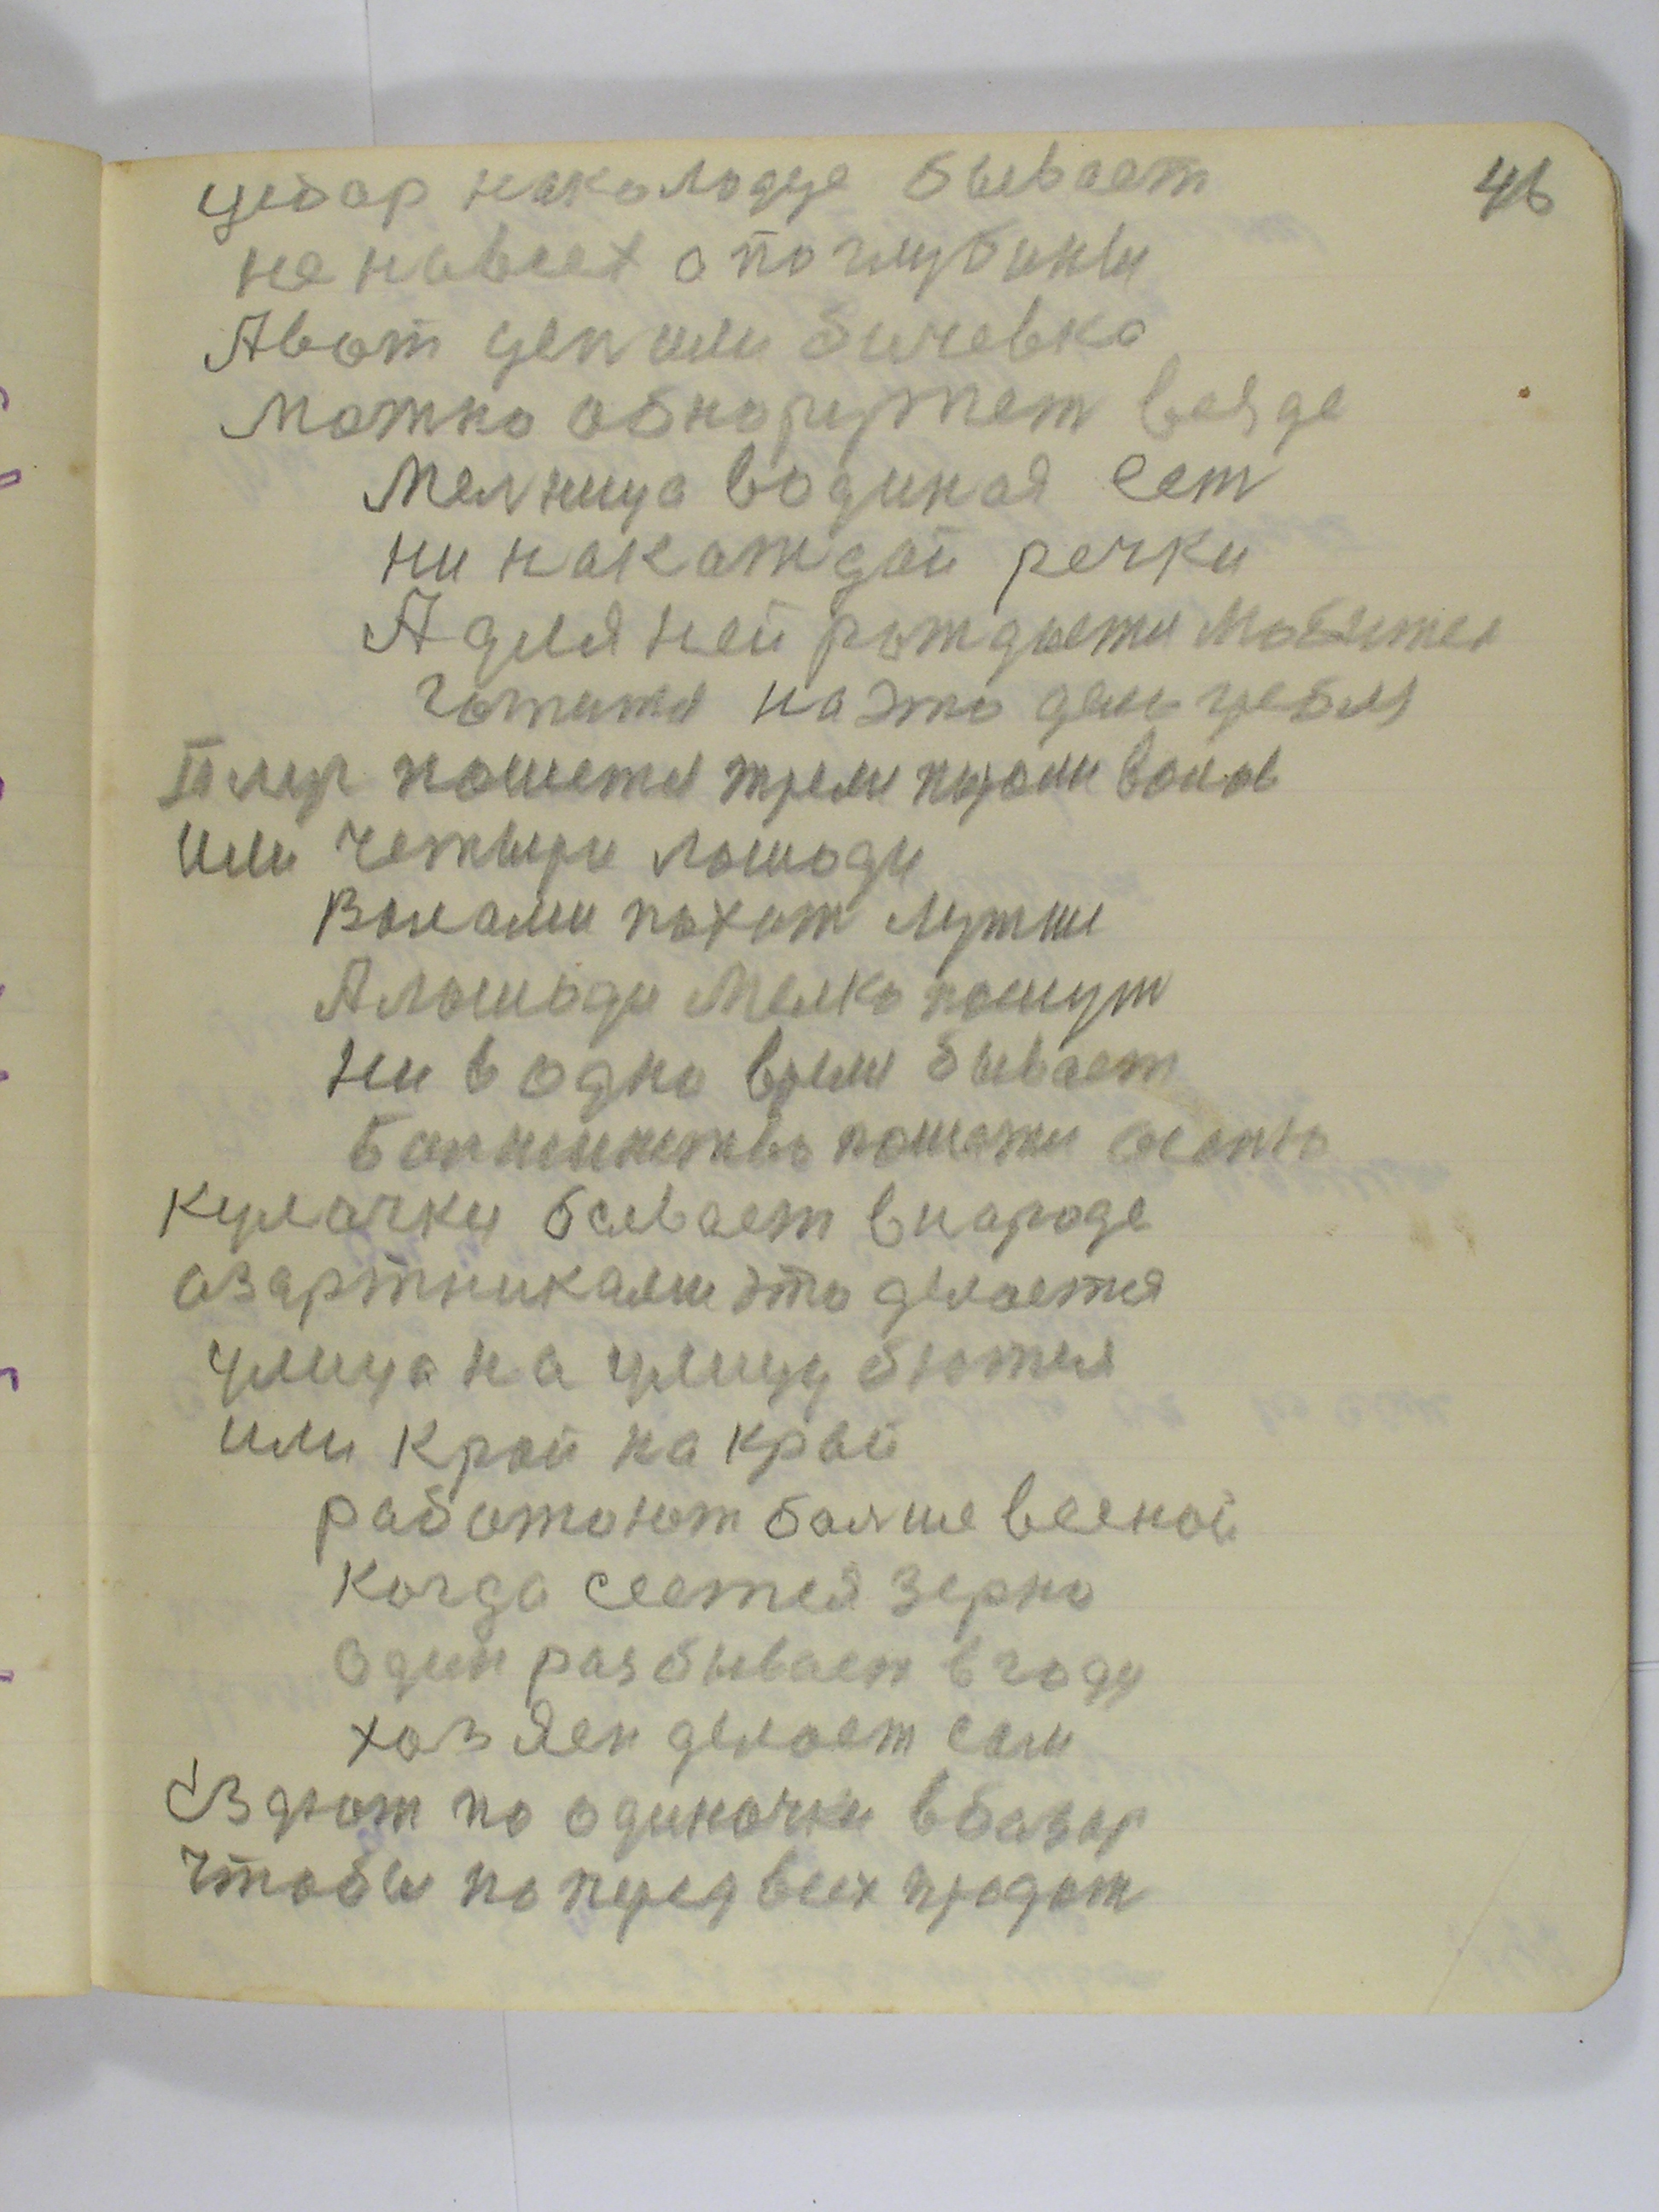 46
цебар наколодце бывает
не навсех апоглубины
Авот цеп или бичевка
можно обнаружет везде
Мелница водиная ест
ни накаждай речки
А для ней рождаетя
на это дели гребля
Плуг пашетя трема парами валов
или четыри лошади
Валами пахат лутши
Алошади мелко пашут
Ни в одно время бывает
пашетя осеню
кулачки бывает внароде
азартниками это делаетя
улица на улицу бютея
или край на край
работают болше весной
когда сеетея зерно
один раз бывает вгоду
хозяен делает сам
Ездют по одиночки вбазар
чтобы поперед всех продат